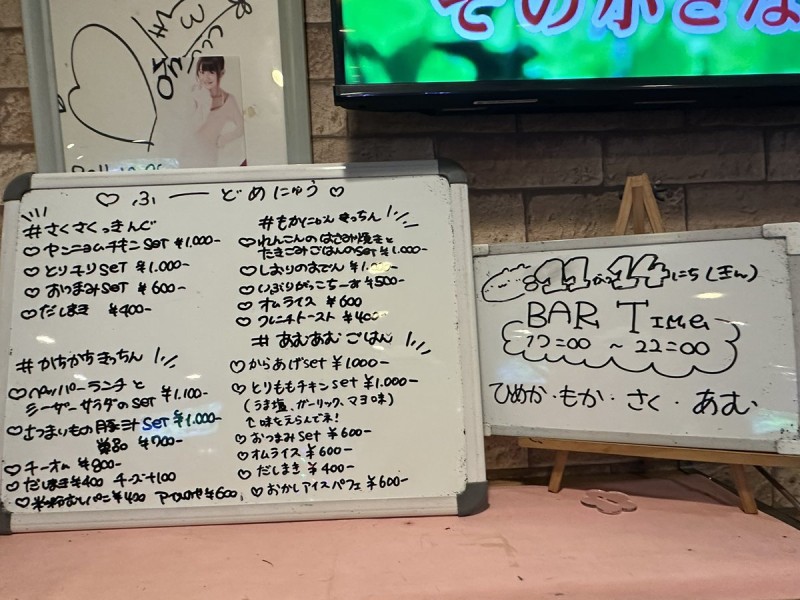 ♡ ふーどめにゅう ♡
#さくさくっきんぐ
♡ヤンニョムチキンSET ¥1.000-
♡とりチリSET ¥1.000-
♡おつまみSET ¥600-
♡だしまき ¥400-
#かちかちきっちん
♡ペッパーランチと
シーザーサラダのSET ¥1.100-
♡さつまいもの豚汁SET ¥1.000-
単品 ¥700-
♡チーオム ¥800-
♡だしまき¥400 チーズ+100
♡米粉むしパン¥400
¥600
#もかにゃんきっちん
♡れんこんのはさみ焼きと
たきこみごはんのSET ¥1.000-
♡しおりのおでん
♡いぶりがっこちーず¥500-
♡オムライス ¥600
♡フレンチトースト ¥400-
#あむあむごはん
♡からあげset ¥1000-
♡とりももチキンset ¥1.000-
(うま塩、ガーリック、マヨ味)
味をえらんでネ!
♡おつまみset ¥600-
♡オムライス ¥600-
♡だしまき ¥400-
♡おかしアイスパフェ ¥600-
11がつ14にち(きん)
BAR TIME
17=00 ~ 22=00
ひめか・もか・さく・あむ